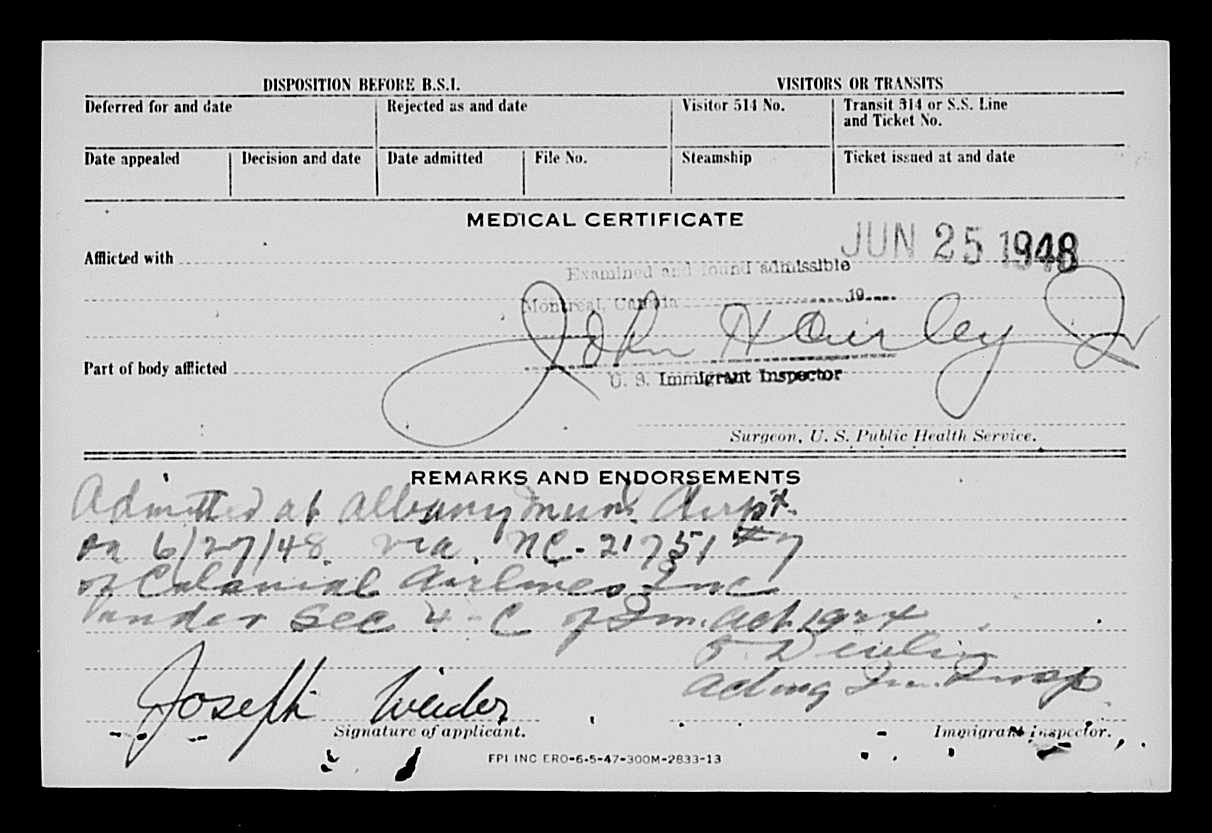 DISPOSITION BEFORE B.S.I. VISITORS OR TRANSITS
Deferred for and date Rejected as and date Visitor 514 No. Transit 314 or S.S. Line and Ticket No.
Date appealed Decision and date Date admitted File No. Steamship Ticket issued at and date
MEDICAL CERTIFICATE
JUN 25 1948
Afflicted with
Examined and found admissible
Montreal, Canada 19
John Hourley Jr
Part of body afflicted
U. S. Immigrant Inspector
Surgeon, U. S. Public Health Service.
REMARKS AND ENDORSEMENTS
Admitted at Albany Mun. Airpt.
on 6/27/48 via NC-21751 #7
of Colonial Airlines Inc
under Sec 4-C of Im. Act 1924
Devlin
Acting Im. Insp
Joseph Weider
Signature of applicant. Immigrant Inspector.
FPI INC ERO-6-5-47-300M-2833-13